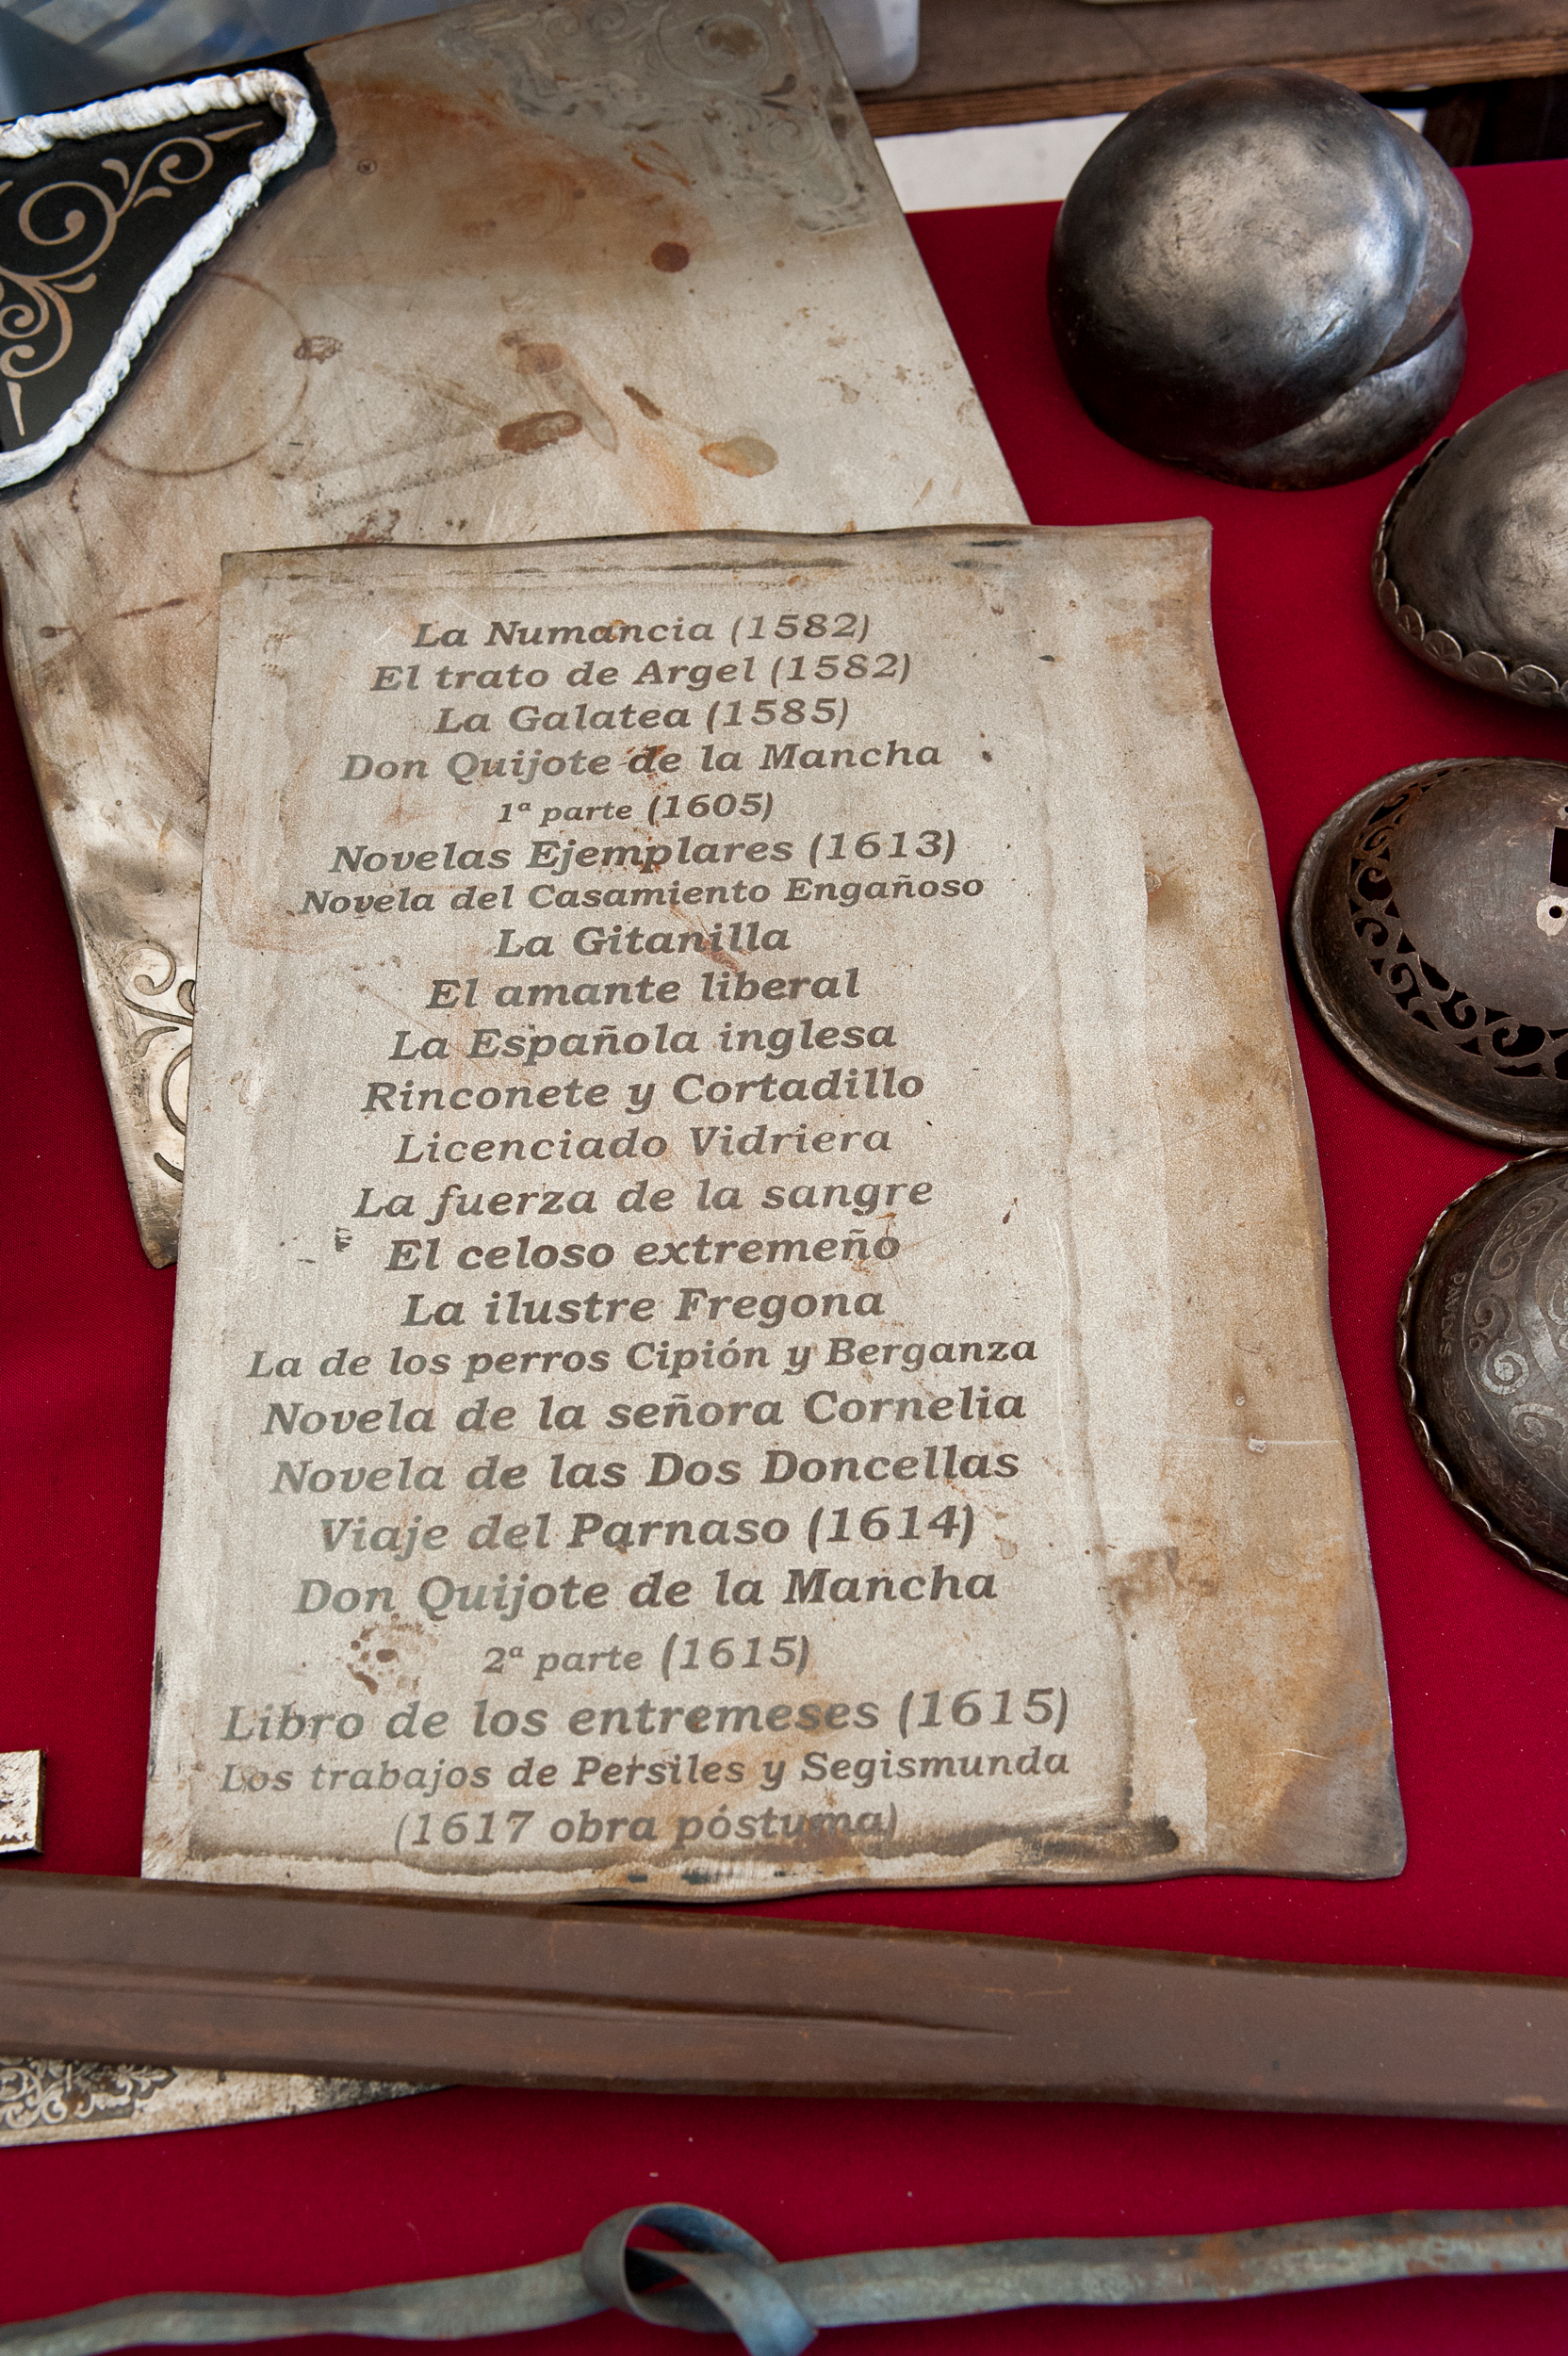 La Numancia (1582)
El trato de Argel (1582)
La Galatea (1585)
Don Quijote de la Mancha
1ª parte (1605)
Novelas Ejemplares (1613)
Novela del Casamiento Engañoso
La Gitanilla
El amante liberal
La Española inglesa
Rinconete y Cortadillo
Licenciado Vidriera
La fuerza de la sangre
El celoso extremeño
La ilustre Fregona
La de los perros Cipión y Berganza
Novela de la señora Cornelia
Novela de las Dos Doncellas
Viaje del Parnaso (1614)
Don Quijote de la Mancha
2ª parte (1615)
Libro de los entremeses (1615)
Los trabajos de Persiles y Segismunda
(1617 obra póstuma)